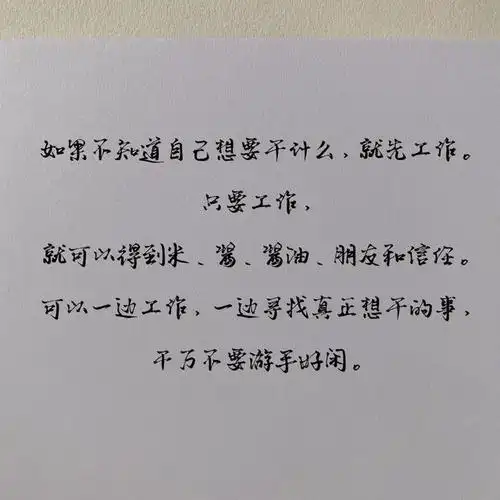 如果不知道自己想要干什么、就先工作。
只要工作，
就可以得到米、酱、酱油、朋友和信任。
可以一边工作，一边寻找真正想干的事，
千万不要游手好闲。